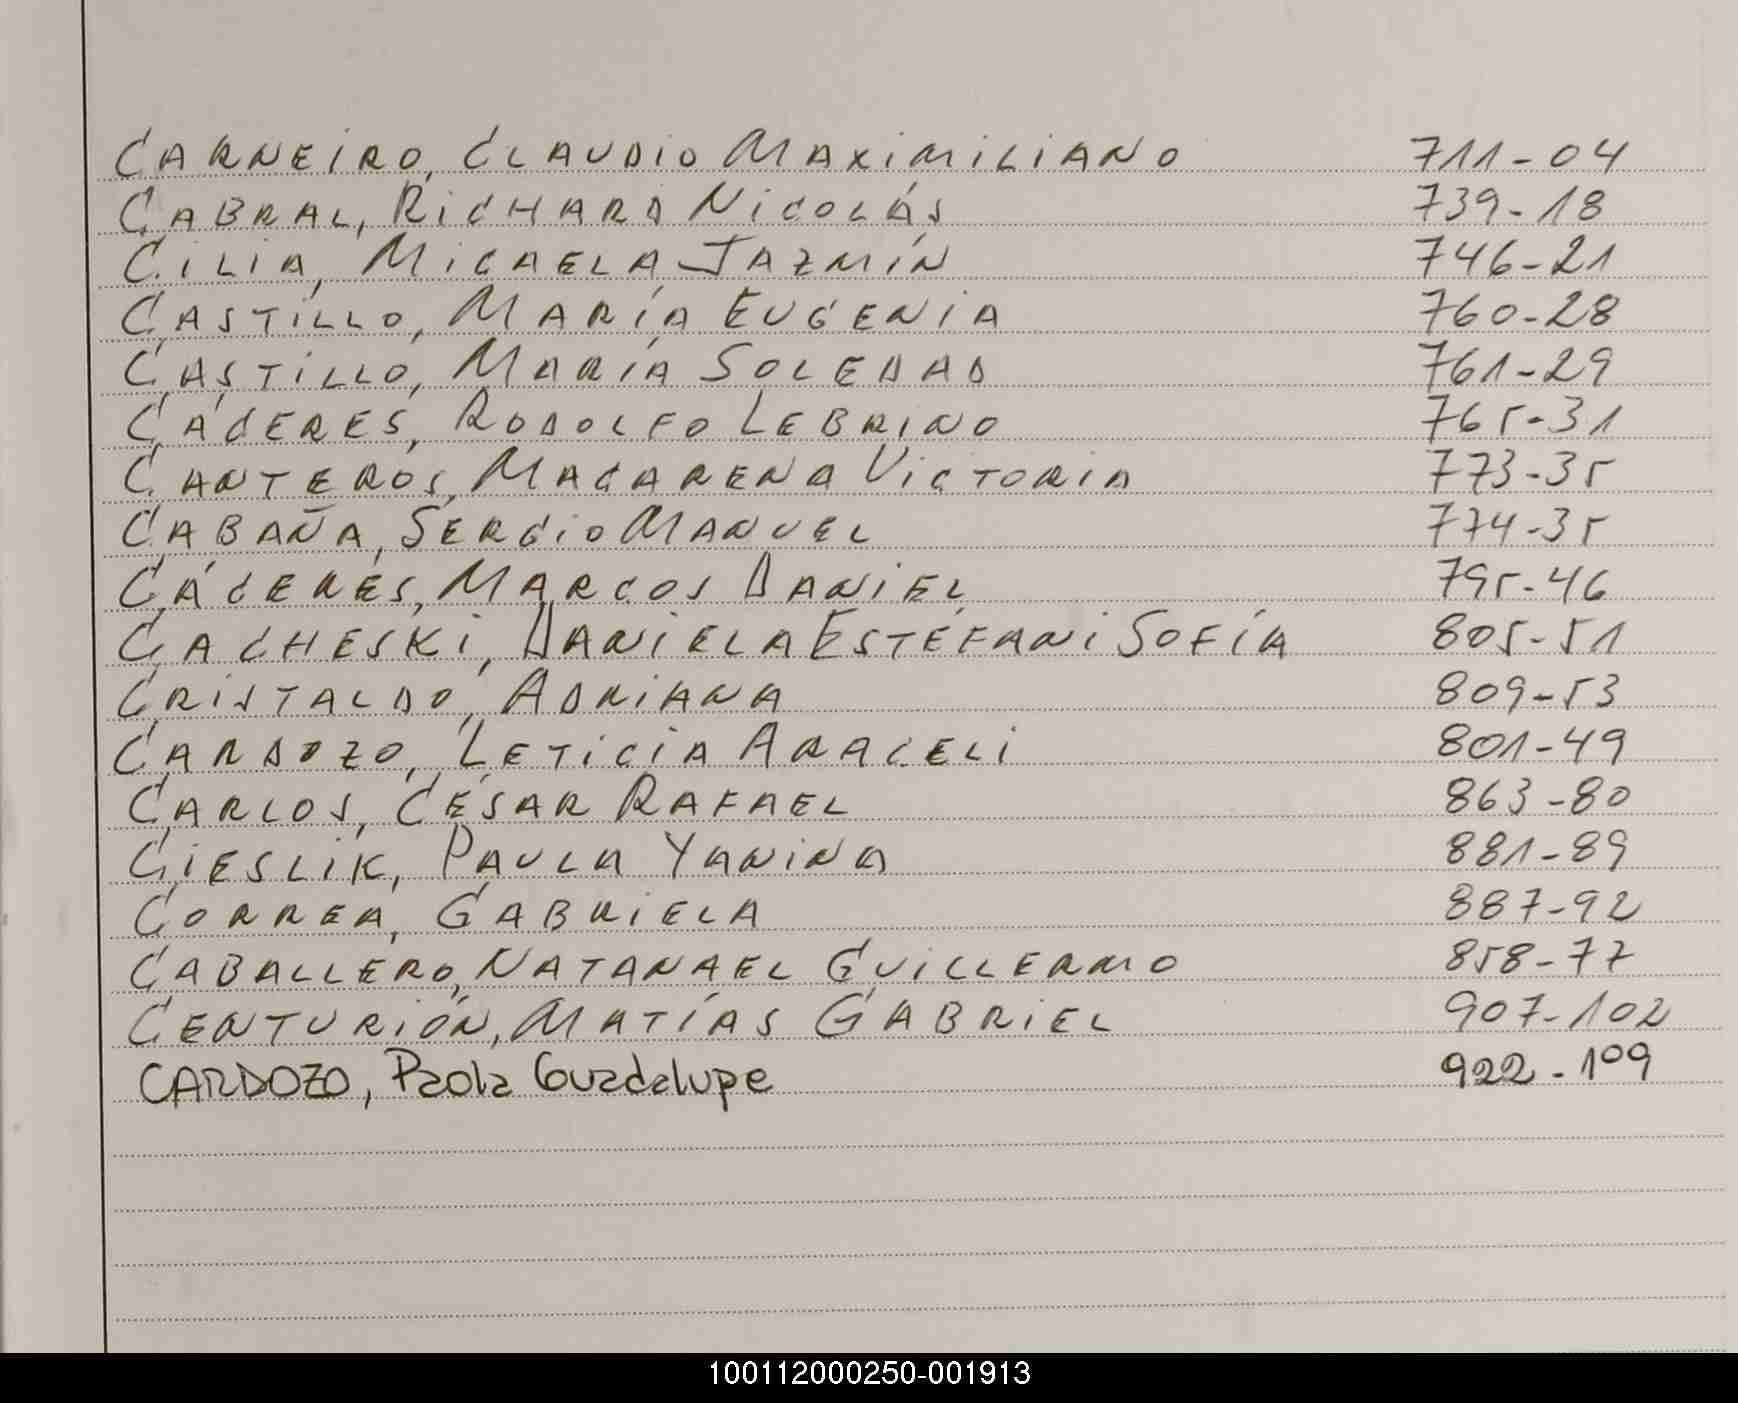 CARNEIRO, CLAUDIO MAXIMILIANO 711-04
CABRAL, RICHARD NICOLÁS 739-18
CILIA, MICAELA JAZMÍN 746-21
CASTILLO, MARÍA EUGENIA 760-28
CASTILLO, MARÍA SOLEDAD 761-29
CÁCERES, RODOLFO LEBRINO 765-31
CANTEROS, MACARENA VICTORIA 773-35
CABAÑA, SERGIO MANUEL 774-35
CÁCERES, MARCOS DANIEL 795-46
CACHESKI, DANIELA ESTEFANI SOFÍA 805-51
CRISTALDO, ADRIANA 809-53
CARDOZO, LETICIA ARACELI 801-49
CARLOS, CÉSAR RAFAEL 863-80
CIESLIK, PAULA YANINA 881-89
CORREA, GABRIELA 887-92
CABALLERO, NATANAEL GUILLERMO 858-77
CENTURIÓN, MATÍAS GABRIEL 907-102
CARDOZO, Paola Guadalupe 922-109
100112000250-001913